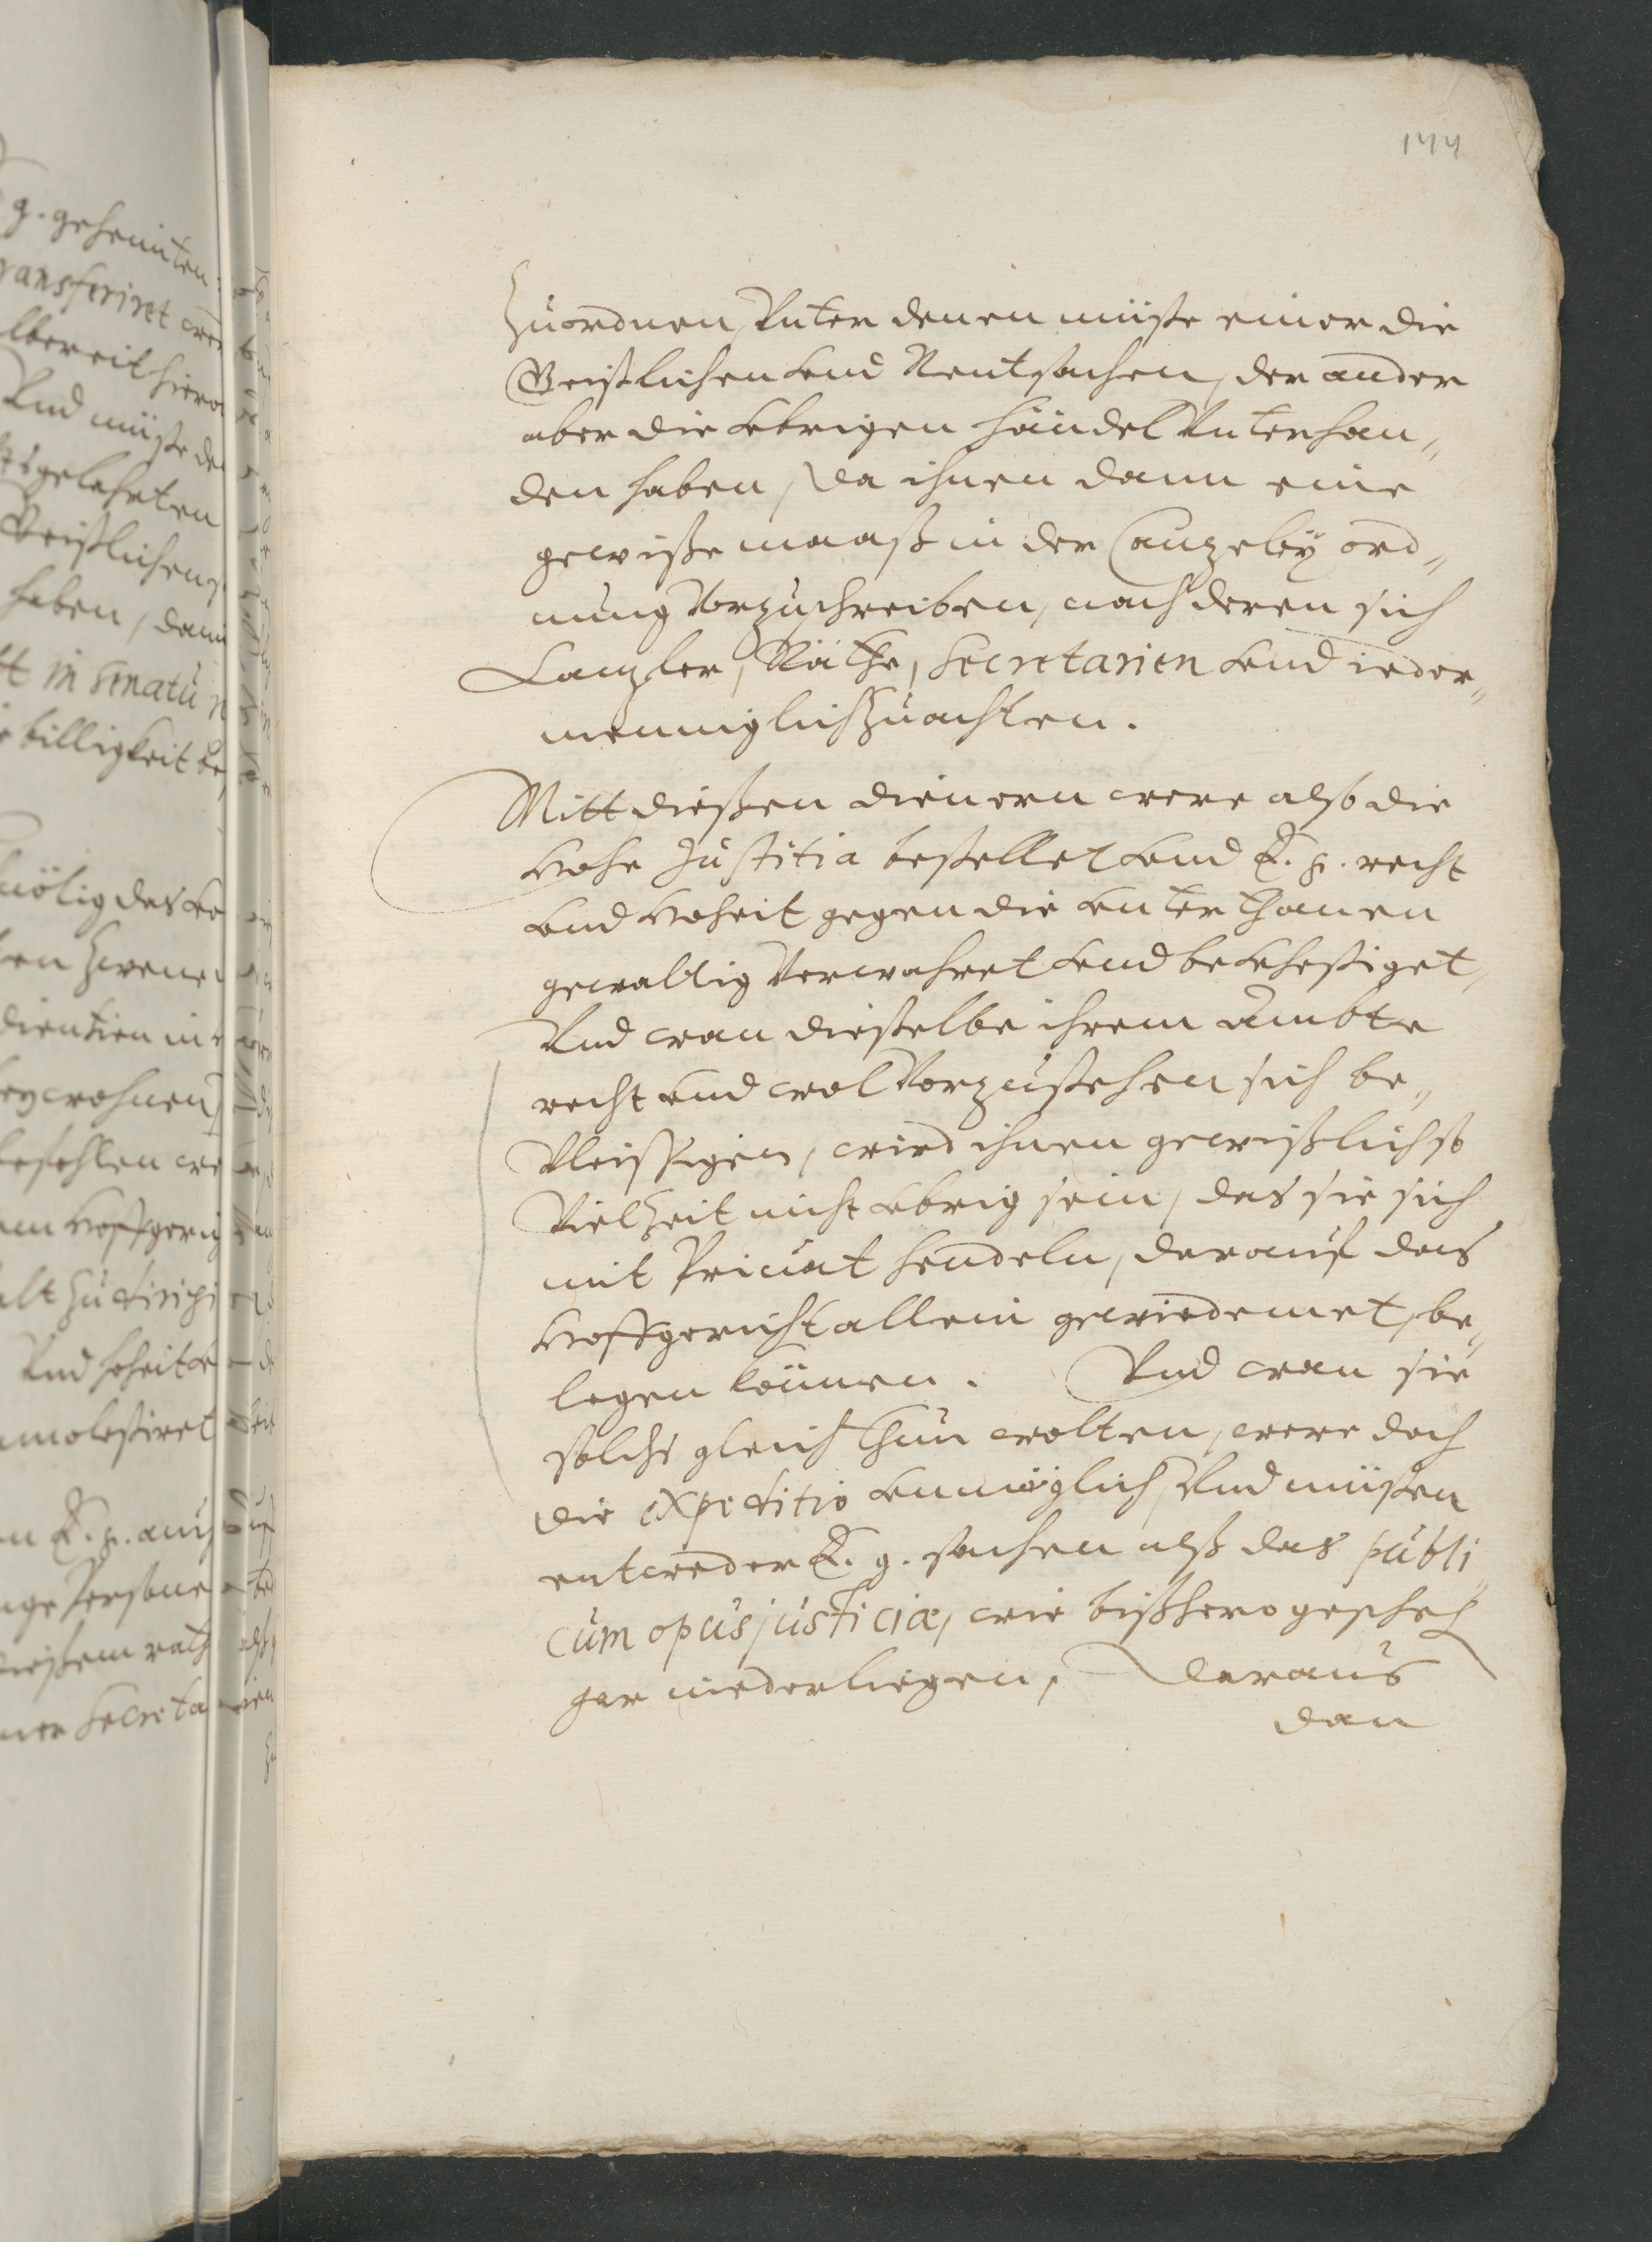 144
Zuordnen, Vnter denen müste einer die
Geistlichen vnd Rentsachen, der ander
aber die vbrigen händel Vnterhan„
den haben, da ihnen dann eine
gewiße maaß in der Cantzeley ord„
nung Vorzuschreiben, nach deren sich
Cantzler, Räthe, Secretarien vnd ieder„
menniglich Zuachten.
Mitt dießen dienern were also die
Hohe Justitia bestellet vnd E. g. recht
vnd Hoheit gegen die vnterthanen
gewaltig Verwahret vnd bevhestiget,
Vnd wan dießelbe ihrem Ambte
recht vnd wol Vorzustehen sich be„
Vleissigen, wird ihnen gewißlich so
Viel Zeit nicht vbrig sein, das sie sich
mit Priuat hendeln, darauf das
Hoffgericht allein gewiedemet, be„
legen können. Vnd wan sie
solchs gleich thun wolten, were doch
die expeditio vnmöglich, Vnd müsten
entweder E. g. sachen alß das publi„
cum opus justiciæ, wie bißhero gescheh
gar niederliegen, Daraus
dan